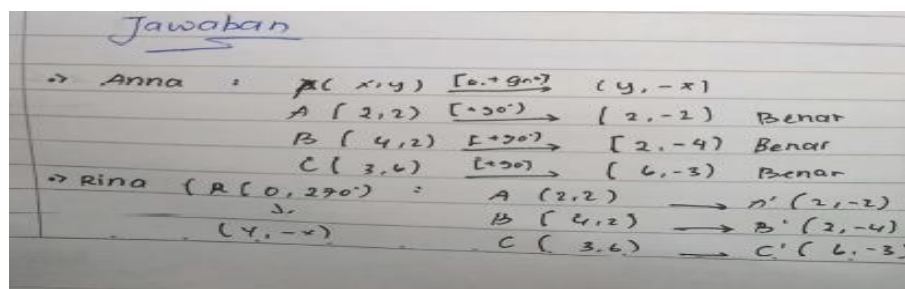 Jawaban
=> Anna : A( x,y) [0.+90°] (y, -x)
A ( 2,2) [+90°] ( 2, -2) Benar
B ( 4,2) [+90°] [ 2, -4) Benar
C ( 3,6) [+90] ( 6, -3) Benar
=> Rina ( R ( 0, 270°) : A (2,2) → A' (2, -2)
B ( 4,2) → B' (2, -4)
(y, -x) C ( 3.6) → C' ( 6. -3)